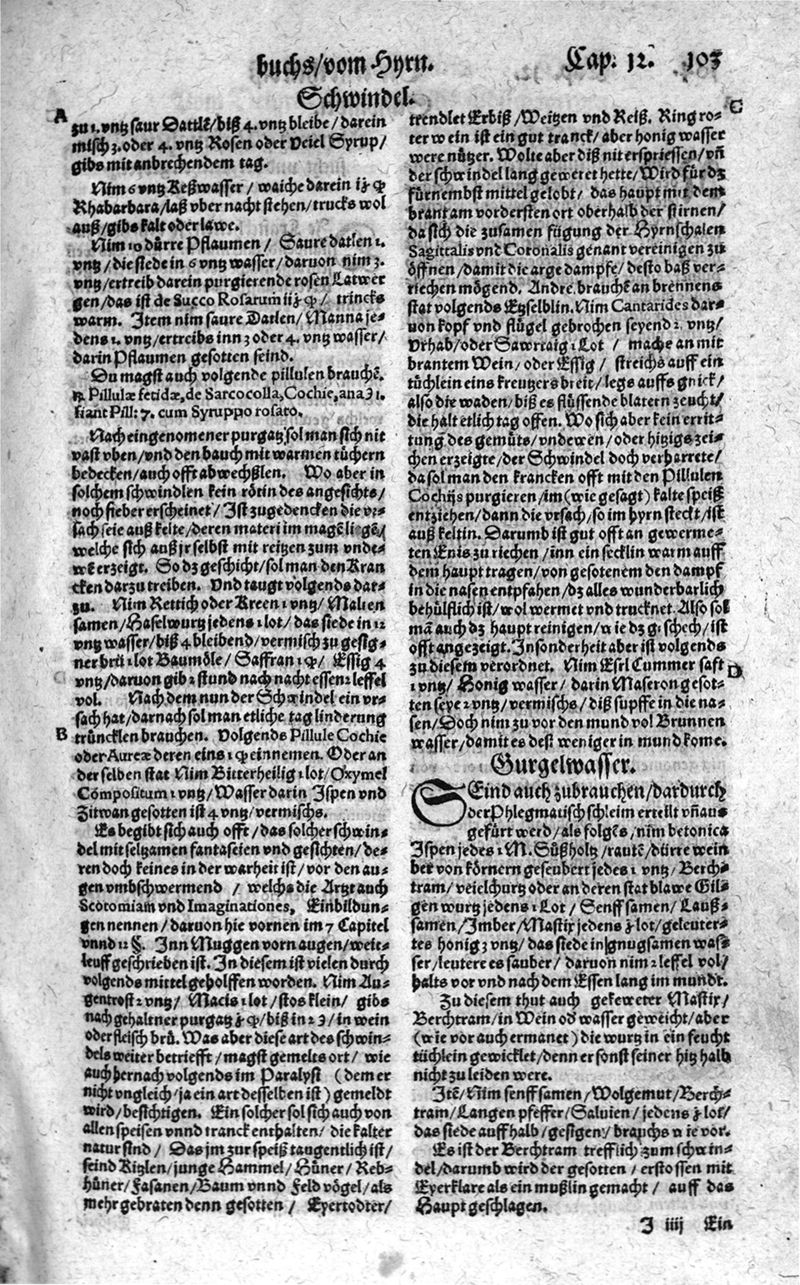 buchs/vom Hyrn. Cap. 12. 103
Schwindel.
A
zu 1. vntz saur Dattlē/biß 4. vntz bleibe/darein
misch 3. oder 4. vntz Rosen oder Veiel Syrup/
gibs mit anbrechendem tag.
Nim 6 vntz Keßwasser/waiche darein
Rhabarbara/laß vber nacht stehen/trucks wol
auß/gibs kalt oder lawe.
Nim 10 dürre Pflaumen/Saure datlen 1.
vntz/die siede in 6 vntz wasser/daruon nim 3.
vntz/ertreib darein purgierende rosen Latwer
gen/das ist de Succo Rosarum trincks
warm. Item nim saure Datlen/Manna je-
dens 1. vntz/ertreibs inn 3 oder 4. vntz wasser/
darin Pflaumen gesotten seind.
Du magst auch volgende pillulen brauchē.
Pillulæ fetidæ, de Sarcocolla, Cochie, ana
fiant Pill: 7. cum Syruppo rosato.
Nach eingenomener purgatz/sol man sich nit
vast vben/vnd den bauch mit warmen tüchern
bedecken/auch offt abwechßlen. Wo aber in
solchem schwindlen kein rötin des angesichts/
noch fieber erscheinet/Ist zugedencken die vr-
sach seie auß kelte/deren materi im magē ligē/
welche sich auß jr selbst mit reitzen zum vnde-
wē erzeigt. So dz geschicht/sol man den Kran
cken darzu treiben. Vnd taugt volgends dar-
zu. Nim Rettich oder Kreen 1 vntz/Malten
samen/Haselwurtz jedens 1 lot/das siede in 12
vntz wasser/biß 4 bleibend/vermisch zu gesig-
ner brü 1 lot Baumöle/Saffran Essig 4
vntz/daruon gib 2 stund nach nacht essen 2 leffel
vol. Nach dem nun der Schwindel ein vr-
sach hat/darnach sol man etliche tag linderung
B
trüncklen brauchen. Volgends Pillule Cochie
oder Aureæ deren eins einnemen. Oder an
der selben stat Nim Bitterheilig 1 lot/Oxymel
Compositum 1 vntz/Wasser darin Ispen vnd
Zitwan gesotten ist 4 vntz/vermischs.
Es begibt sich auch offt/das solcher schwin-
del mit seltzamen fantaseien vnd gesichten/de-
ren doch keines in der warheit ist/vor den au-
gen vmbschwermend/welchs die Artzt auch
Scotomiam vnd Imaginationes, Einbildun-
gen nennen/daruon hie vornen im 7 Capitel
vnnd 12 §. Inn Muggen vorn augen/weit-
leuff geschrieben ist. In diesem ist vielen durch
volgends mittel geholffen worden. Nim Au-
gentrost 2 vntz/Macis 1 lot/stos klein/gibs
nach gehaltner purgatz biß in in wein
oder fleisch brü. Was aber diese art des schwin-
dels weiter betrefft/magst gemelts ort/wie
auch hernach volgends im Paralyst (dem er
nicht vngleich/ja ein art desselben ist) gemeldt
wird/besichtigen. Ein solcher sol sich auch von
allen speisen vnnd tranck enthalten/die kalter
natur sind/Das jm zur speiß taugentlich ist/
seind Kitzlen/junge Hammel/Hüner/Reb-
hüner/Fasanen/Baum vnnd Feld vögel/als
mehr gebraten denn gesotten/Eyertodter/
C
trendlet Erbiß/Weitzen vnd Reiß. Ring ro-
ter wein ist ein gut tranck/aber honig wasser
were nützer. Wolte aber diß nit erspriessen/vñ
der schwindel lang geweret hette/Wird für dz
fürnembst mittel gelobt/das haupt mit dem
brant am vordersten ort oberhalb der stirnen/
da sich die zusamen fügung der Hyrnschalen
Sagittalis vnd Coronalis genant vereinigen zu
öffnen/damit die arge dampfe/desto baß ver-
riechen mögend. Andre brauchē an brennens
stat volgends Etzselblin. Nim Cantarides dar-
uon kopf vnd flügel gebrochen seyend 2. vntz/
Vrhab/oder Sawrtaig 1 Lot/mache an mit
brantem Wein/oder Essig/streichs auff ein
tüchlein eins kreutzers breit/legs auffs gnick/
also die waden/biß es flüssende blatern zeucht/
die halt etlich tag offen. Wo sich aber kein errit-
tung des gemüts/vndewen/oder hitzigs zei-
chen erzeigte/der Schwindel doch verharrete/
da sol man den krancken offt mit den Pillulen
Cochijs purgieren/im (wie gesagt) kalte speiß
entziehen/dann die vrsach/so im hyrn steckt/ist
auß keltin. Darumb ist gut offt an gewerme-
ten Enis zu riechen/inn ein secklin warm auff
dem haupt tragen/von gesotenem den dampf
in die nasen entpfahen/dz alles wunderbarlich
behülflich ist/wol wermet vnd trucknet. Also sol
mā auch dz haupt reinigen/wie dz gschech/ist
offt angezeigt. Insonderheit aber ist volgends
D
zu diesem verordnet. Nim Esel Cummer safft
1 vntz/Honig wasser/darin Maseron gesot-
ten seye 2 vntz/vermischs/diß supffe in die na-
sen/Doch nim zu vor den mund vol Brunnen
wasser/damit es dest weniger in mund kome.
Gurgelwasser.
SEind auch zubrauchen/dardurch
der Phlegmatisch schleim erteilt vñ auß
gefürt werd/als folgēs/nim betonica
Ispen jedes 1 M. Süßholtz/rautē/dürre wein
ber von körnern gesenbert jedes 1 vntz/Berch-
tram/veielwurtz oder an deren stat blawe Gil-
gen wurtz jedens 1 Lot/Senff samen/Lauß-
samen/Imber/Mastix jedens lot/geleuter-
tes honig 3 vntz/das siede in gnugsamen was-
ser/leutere es sauber/daruon nim 2 leffel vol/
halts vor vnd nach dem Essen lang im mundt.
Zu diesem thut auch gekeweter Mastix/
Berchtram/in Wein od wasser geweicht/aber
(wie vor auch ermanet) die wurtz in ein feucht
tüchlein gewicklet/denn er sonst seiner hitz halb
nicht zu leiden were.
Itē/Nim senff samen/Wolgemut/Berch-
tram/Langen pfeffer/Saluien/jedens lot/
das siede auff halb/gesigen/brauchs wie vor.
Es ist der Berchtram trefflich zum schwin-
del/darumb wird der gesotten/erstossen mit
Eyerklare als ein mußlin gemacht/auff das
Haupt geschlagen.
J iiij Ein